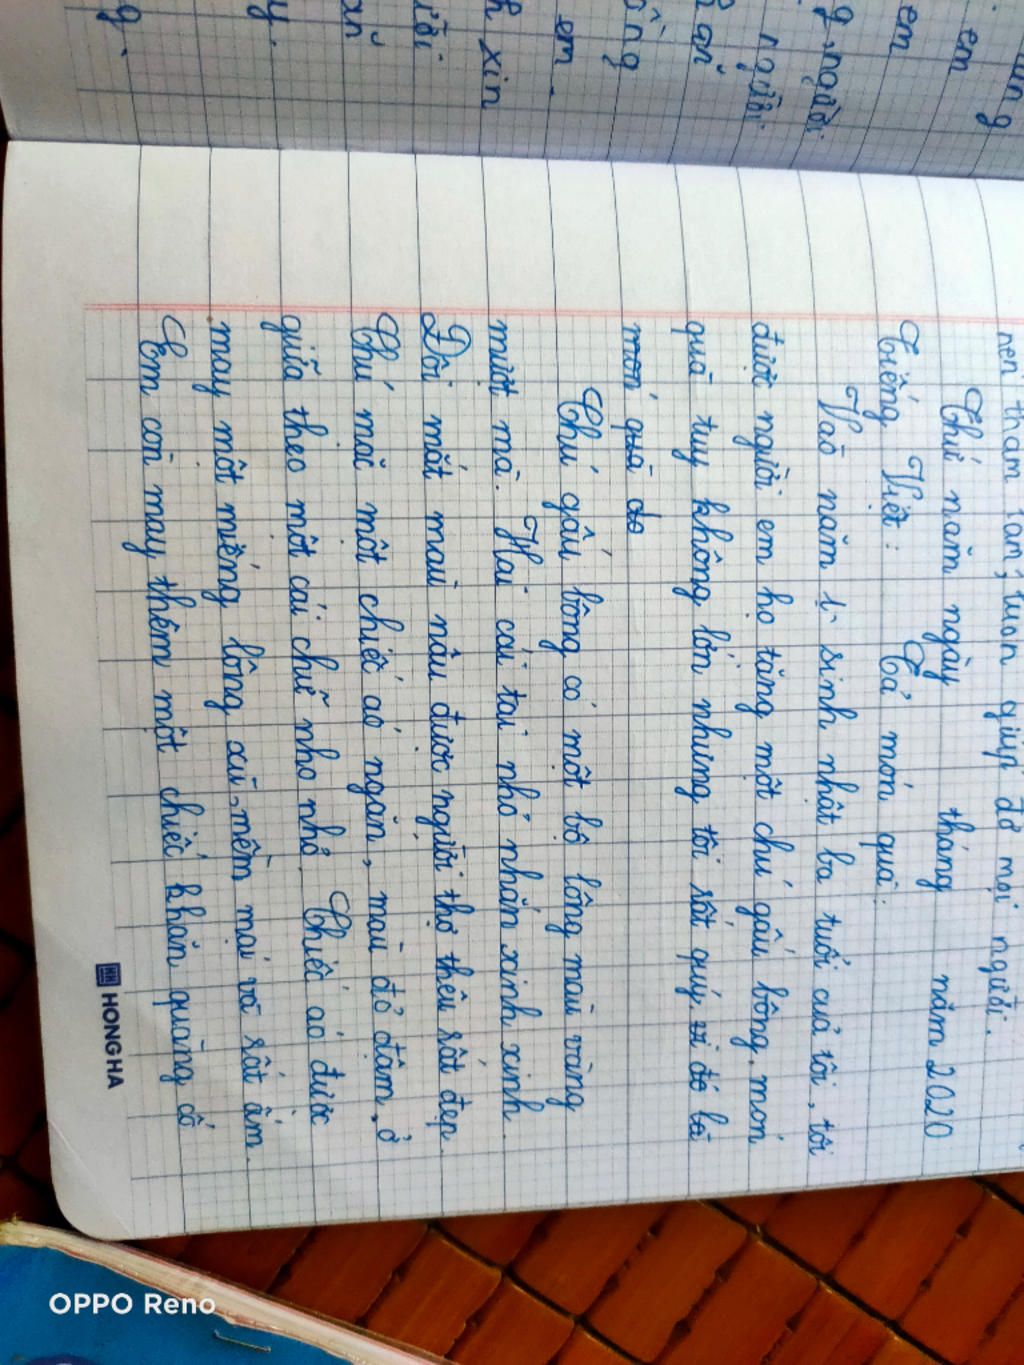 ung
em
em
g người
người
ăn
ông
em.
h xin
ười
ăn
y.
g.
nên tham lam, luôn giúp đỡ mọi người.
Thứ năm ngày tháng năm 2020
Tiếng Việt: Tả món quà:
Vào năm sinh nhật ba tuổi của tôi, tôi
được người em họ tặng một chú gấu bông, món
quà tuy không lớn nhưng tôi rất quý vì đó là
món quà do
Chú gấu bông có một bộ lông màu vàng
mượt mà. Hai cái tai nhỏ nhắn xinh xinh.
Đôi mắt màu nâu được người thợ thêu rất đẹp.
Chú mặc một chiếc áo ngắn, màu đỏ đậm, ở
giữa theo một cái chữ nho nhỏ. Chiếc áo được
may một miếng lông xù, mềm mại và rất ấm.
Em còn may thêm một chiếc khăn quàng cổ
HONG HA
OPPO Reno